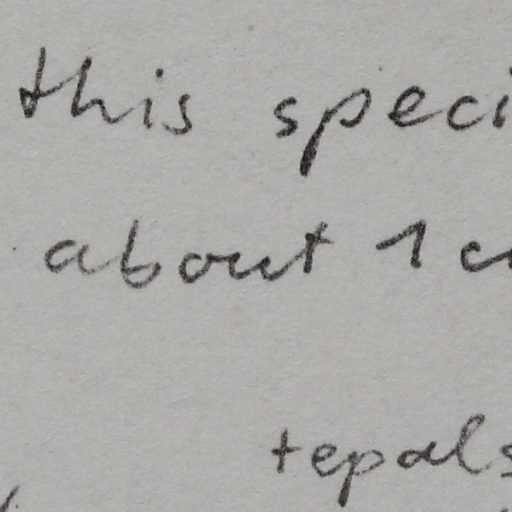 this speci
about 1 c
tepals